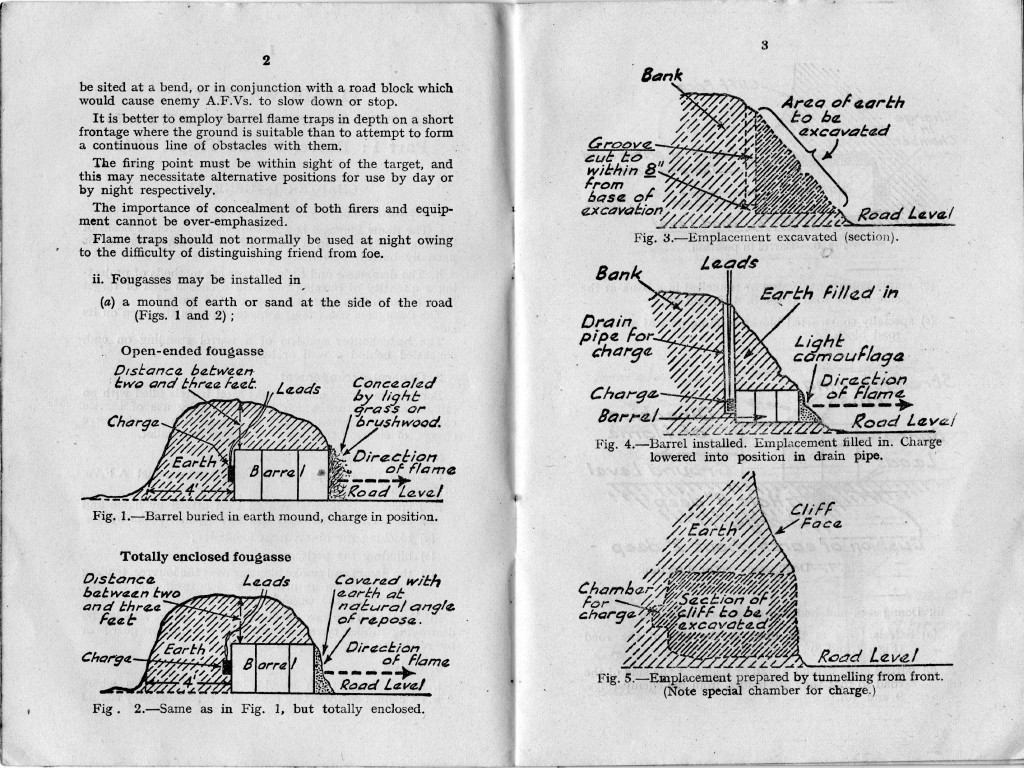 2
be sited at a bend, or in conjunction with a road block which
would cause enemy A.F.Vs. to slow down or stop.
It is better to employ barrel flame traps in depth on a short
frontage where the ground is suitable than to attempt to form
a continuous line of obstacles with them.
The firing point must be within sight of the target, and
this may necessitate alternative positions for use by day or
by night respectively.
The importance of concealment of both firers and equip-
ment cannot be over-emphasized.
Flame traps should not normally be used at night owing
to the difficulty of distinguishing friend from foe.
ii. Fougasses may be installed in
(a) a mound of earth or sand at the side of the road
(Figs. 1 and 2) ;
Open-ended fougasse
Distance between
two and three feet.
Leads
Charge
Concealed
by light
grass or
brushwood.
Earth
Barrel
Direction
of flame
4'
Road Level
Fig. 1.—Barrel buried in earth mound, charge in position.
Totally enclosed fougasse
Distance
between two
and three
feet
Leads
Covered with
earth at
natural angle
of repose.
Earth
Charge
Barrel
Direction
of flame
4'
Road Level
Fig. 2.—Same as in Fig. 1, but totally enclosed.
3
Bank
Area of earth
to be
excavated
Groove
cut to
within 8"
from
base of
excavation
Road Level
Fig. 3.—Emplacement excavated (section).
Leads
Bank
Earth filled in
Drain
pipe for
charge
Light
camouflage
Charge
Direction
of flame
Barrel
Road Level
Fig. 4.—Barrel installed. Emplacement filled in. Charge
lowered into position in drain pipe.
Cliff
Face
Earth
Chamber
for
charge
Section of
cliff to be
excavated
Road Level
Fig. 5.—Emplacement prepared by tunnelling from front.
(Note special chamber for charge.)